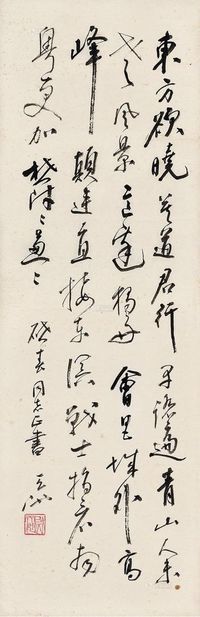 東方欲曉莫道君行早踏遍青山人未
老風景這邊獨好會昌城外高
峰顛連直接東溟戰士指看南
粵更加欝〻蔥〻
同志正書